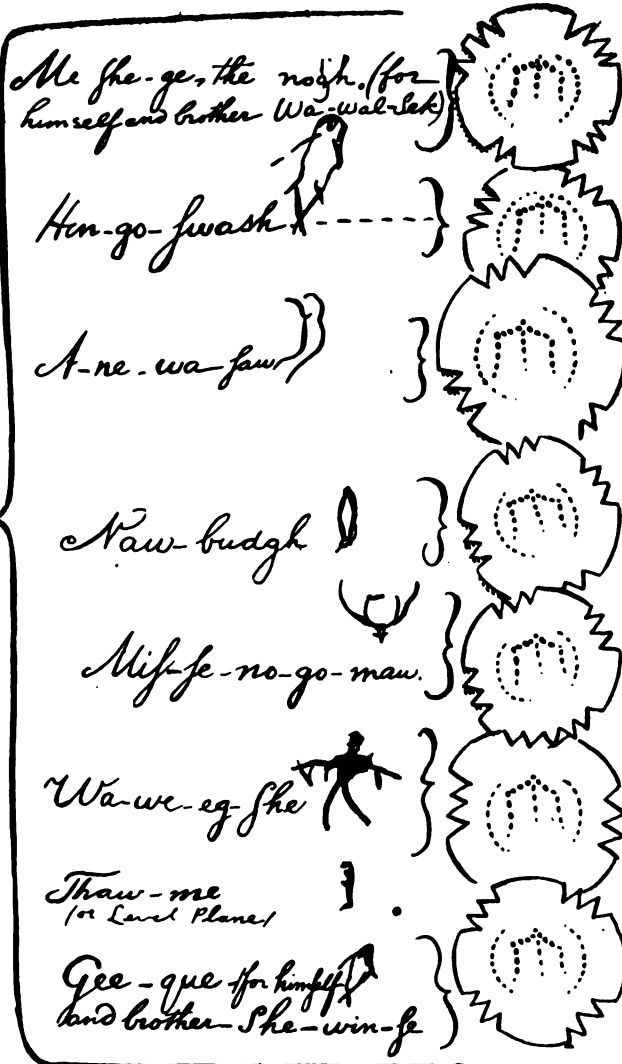 Me She-ge, the nogh. (for
himself and brother Wa-wal-Sek)
Hin-go-Swash
A-ne-wa-saw
Naw-budgh
Mis-se-no-go-maw.
Wa-we-eg-She
Thaw-me
(or Level Plane)
Gee-que (for himself
and brother-She-win-se